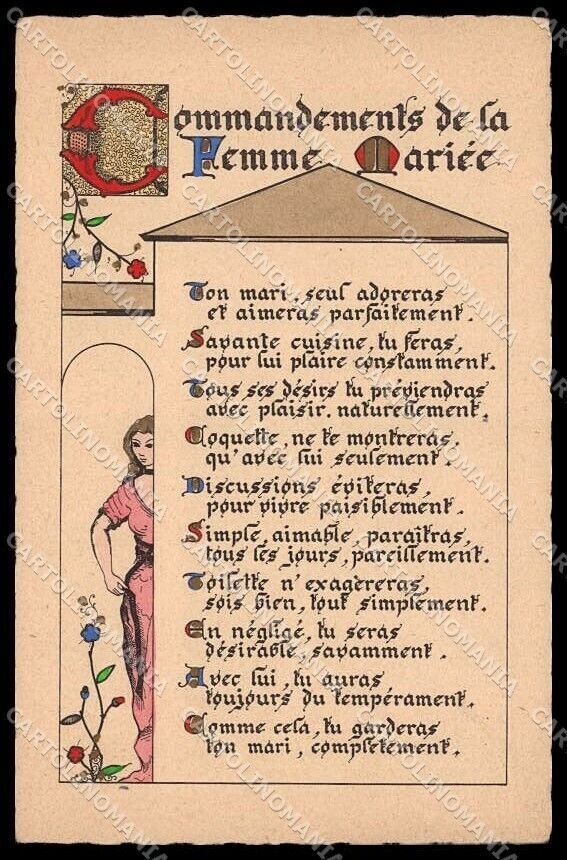 Commandements de la
Femme Mariée
Ton mari, seul adoreras
et aimeras parfaitement.
Savante cuisine, tu feras,
pour lui plaire constamment.
Tous ses désirs tu préviendras
avec plaisir, naturellement.
Coquette, ne te montreras,
qu'avec lui seulement.
Discussions éviteras,
pour vivre paisiblement.
Simple, aimable, paraîtras,
tous les jours, pareillement.
Toilette n'exagèreras,
sois bien, tout simplement.
En négligé, tu seras
désirable, savamment.
Avec lui, tu auras
toujours du tempérament.
Comme cela, tu garderas
ton mari, complètement.
CARTOLINOMANIA